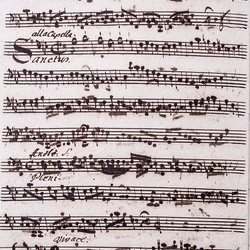 alla Capella
Sanctus.
Pleni.
Vivace.